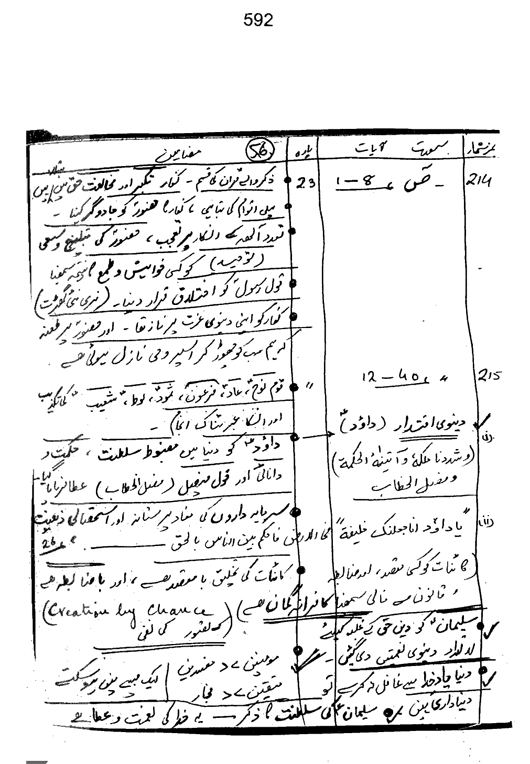 592
نمبر شمار سورت آیات پارہ 56 مضامین
214 ص ، 8 – 1 23 • ذکر والے قرآن کی قسم ۔ کفار تکبر اور مخالفت حق میں
• پہلی اقوام کی تباہی ، کفار کا حضورؐ کو جادوگر کہنا ۔
• تعدد آلھہ کے انکار پر تعجب ، حضورؐ کی تبلیغ و سعی
(توحید) کو کسی خواہش و طمع سمجھنا
• قول رسولؐ کو اختلاق قرار دینا ۔ (نری نئی گھڑت)
• کفار کو اپنی دنیوی عزت پر ناز تھا ۔ اور حضورؐ پر طعنہ
کہ ہم سب کو چھوڑ کر اس پر وحی نازل ہوئی ہے
215 〃 ، 40 – 12 〃 • قوم نوحؑ ، عاد ، فرعون ، ثمود ، لوطؑ ، شعیبؑ کی تکذیب
اور انکا عبرتناک انجام ۔
(i) دنیوی اقتدار (داؤدؑ) → • داؤدؑ کو دنیا میں مضبوط سلطنت ، حکمت و
(وشددنا ملکہ و آتینٰہ الحکمۃ و فصل الخطاب) دانائی اور قول فیصل (فصل الخطاب) عطا فرمایا گیا ۔
• سرمایہ داروں کی مفاد پرستانہ اور استحصالی ذہنیت
(ii) "یا داؤد انا جعلنٰک خلیفۃ" فی الارض فاحکم بین الناس بالحق ۔ 26
(کائنات کو کسی مقصد ، اور ضابطہ • کائنات کی تخلیق با مقصد ہے ، اور با ضابطہ ہے
و قانون سے خالی سمجھنا کافرانہ گمان ہے) (Creation by chance
کے تصور کی نفی)
• سلیمانؑ کو دین حق کے غلبہ کیلئے
دنیوی نعمتیں دی گئیں ۔ • مومنین ، مفسدین
متقین ، فجار ایک جیسے نہیں ہو سکتے
• دنیا یاد خدا سے غافل نہ کرے تو
دنیا داری نہیں • سلیمانؑ کی سلطنت کا ذکر — یہ خدا کی نعمت و عطا ہے